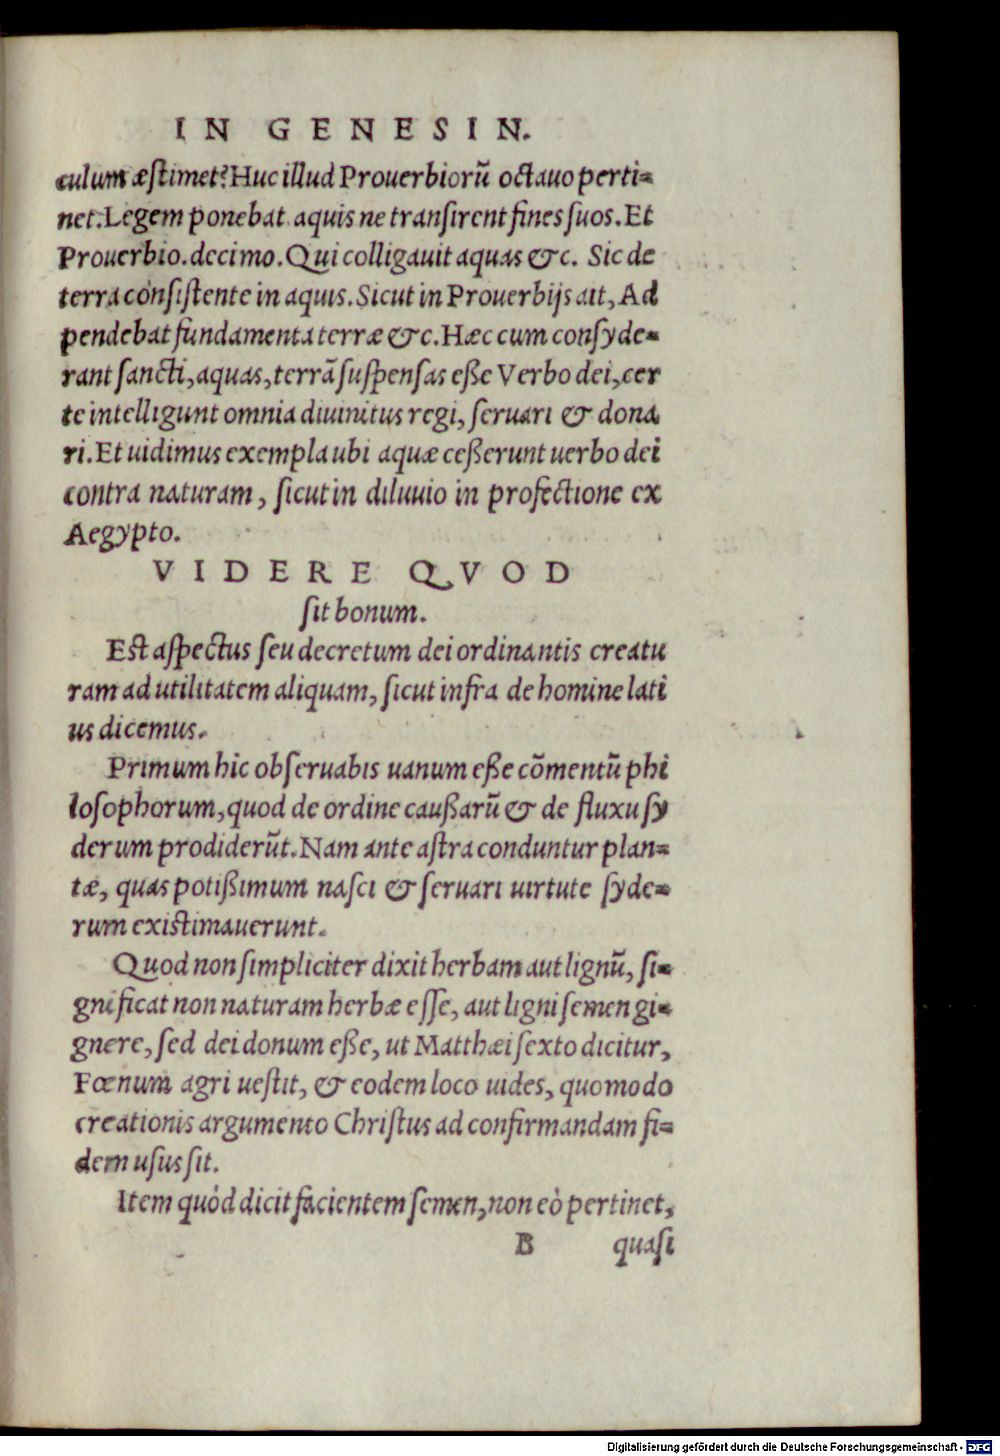 IN GENESIN.
culum æstimet? Huc illud Prouerbiorũ octauo perti=
net. Legem ponebat aquis ne transirent fines suos. Et
Prouerbio. decimo. Qui colligauit aquas &c. Sic de
terra consistente in aquis. Sicut in Prouerbijs ait, Ad
pendebat fundamenta terræ &c. Hæc cum consyde=
rant sancti, aquas, terrã suspensas eße Verbo dei, cer
te intelligunt omnia diuinitus regi, seruari & dona
ri. Et uidimus exempla ubi aquæ ceßerunt uerbo dei
contra naturam, sicut in diluuio in profectione ex
Aegypto.
VIDERE QVOD
sit bonum.
Est aspectus seu decretum dei ordinantis creatu
ram ad utilitatem aliquam, sicut infra de homine lati
us dicemus.
Primum hic obseruabis uanum eße cõmentũ phi
losophorum, quod de ordine caußarũ & de fluxu sy
derum prodiderũt. Nam ante astra conduntur plan=
tæ, quas potißimum nasci & seruari uirtute syde=
rum existimauerunt.
Quod non simpliciter dixit herbam aut lignũ, si=
gnificat non naturam herbæ esse, aut ligni semen gi=
gnere, sed dei donum eße, ut Matthæi sexto dicitur,
Fœnum agri uestit, & eodem loco uides, quomodo
creationis argumento Christus ad confirmandam fi=
dem usus sit.
Item quòd dicit facientem semen, non eò pertinet,
B quasi
Digitalisierung gefördert durch die Deutsche Forschungsgemeinschaft - DFG